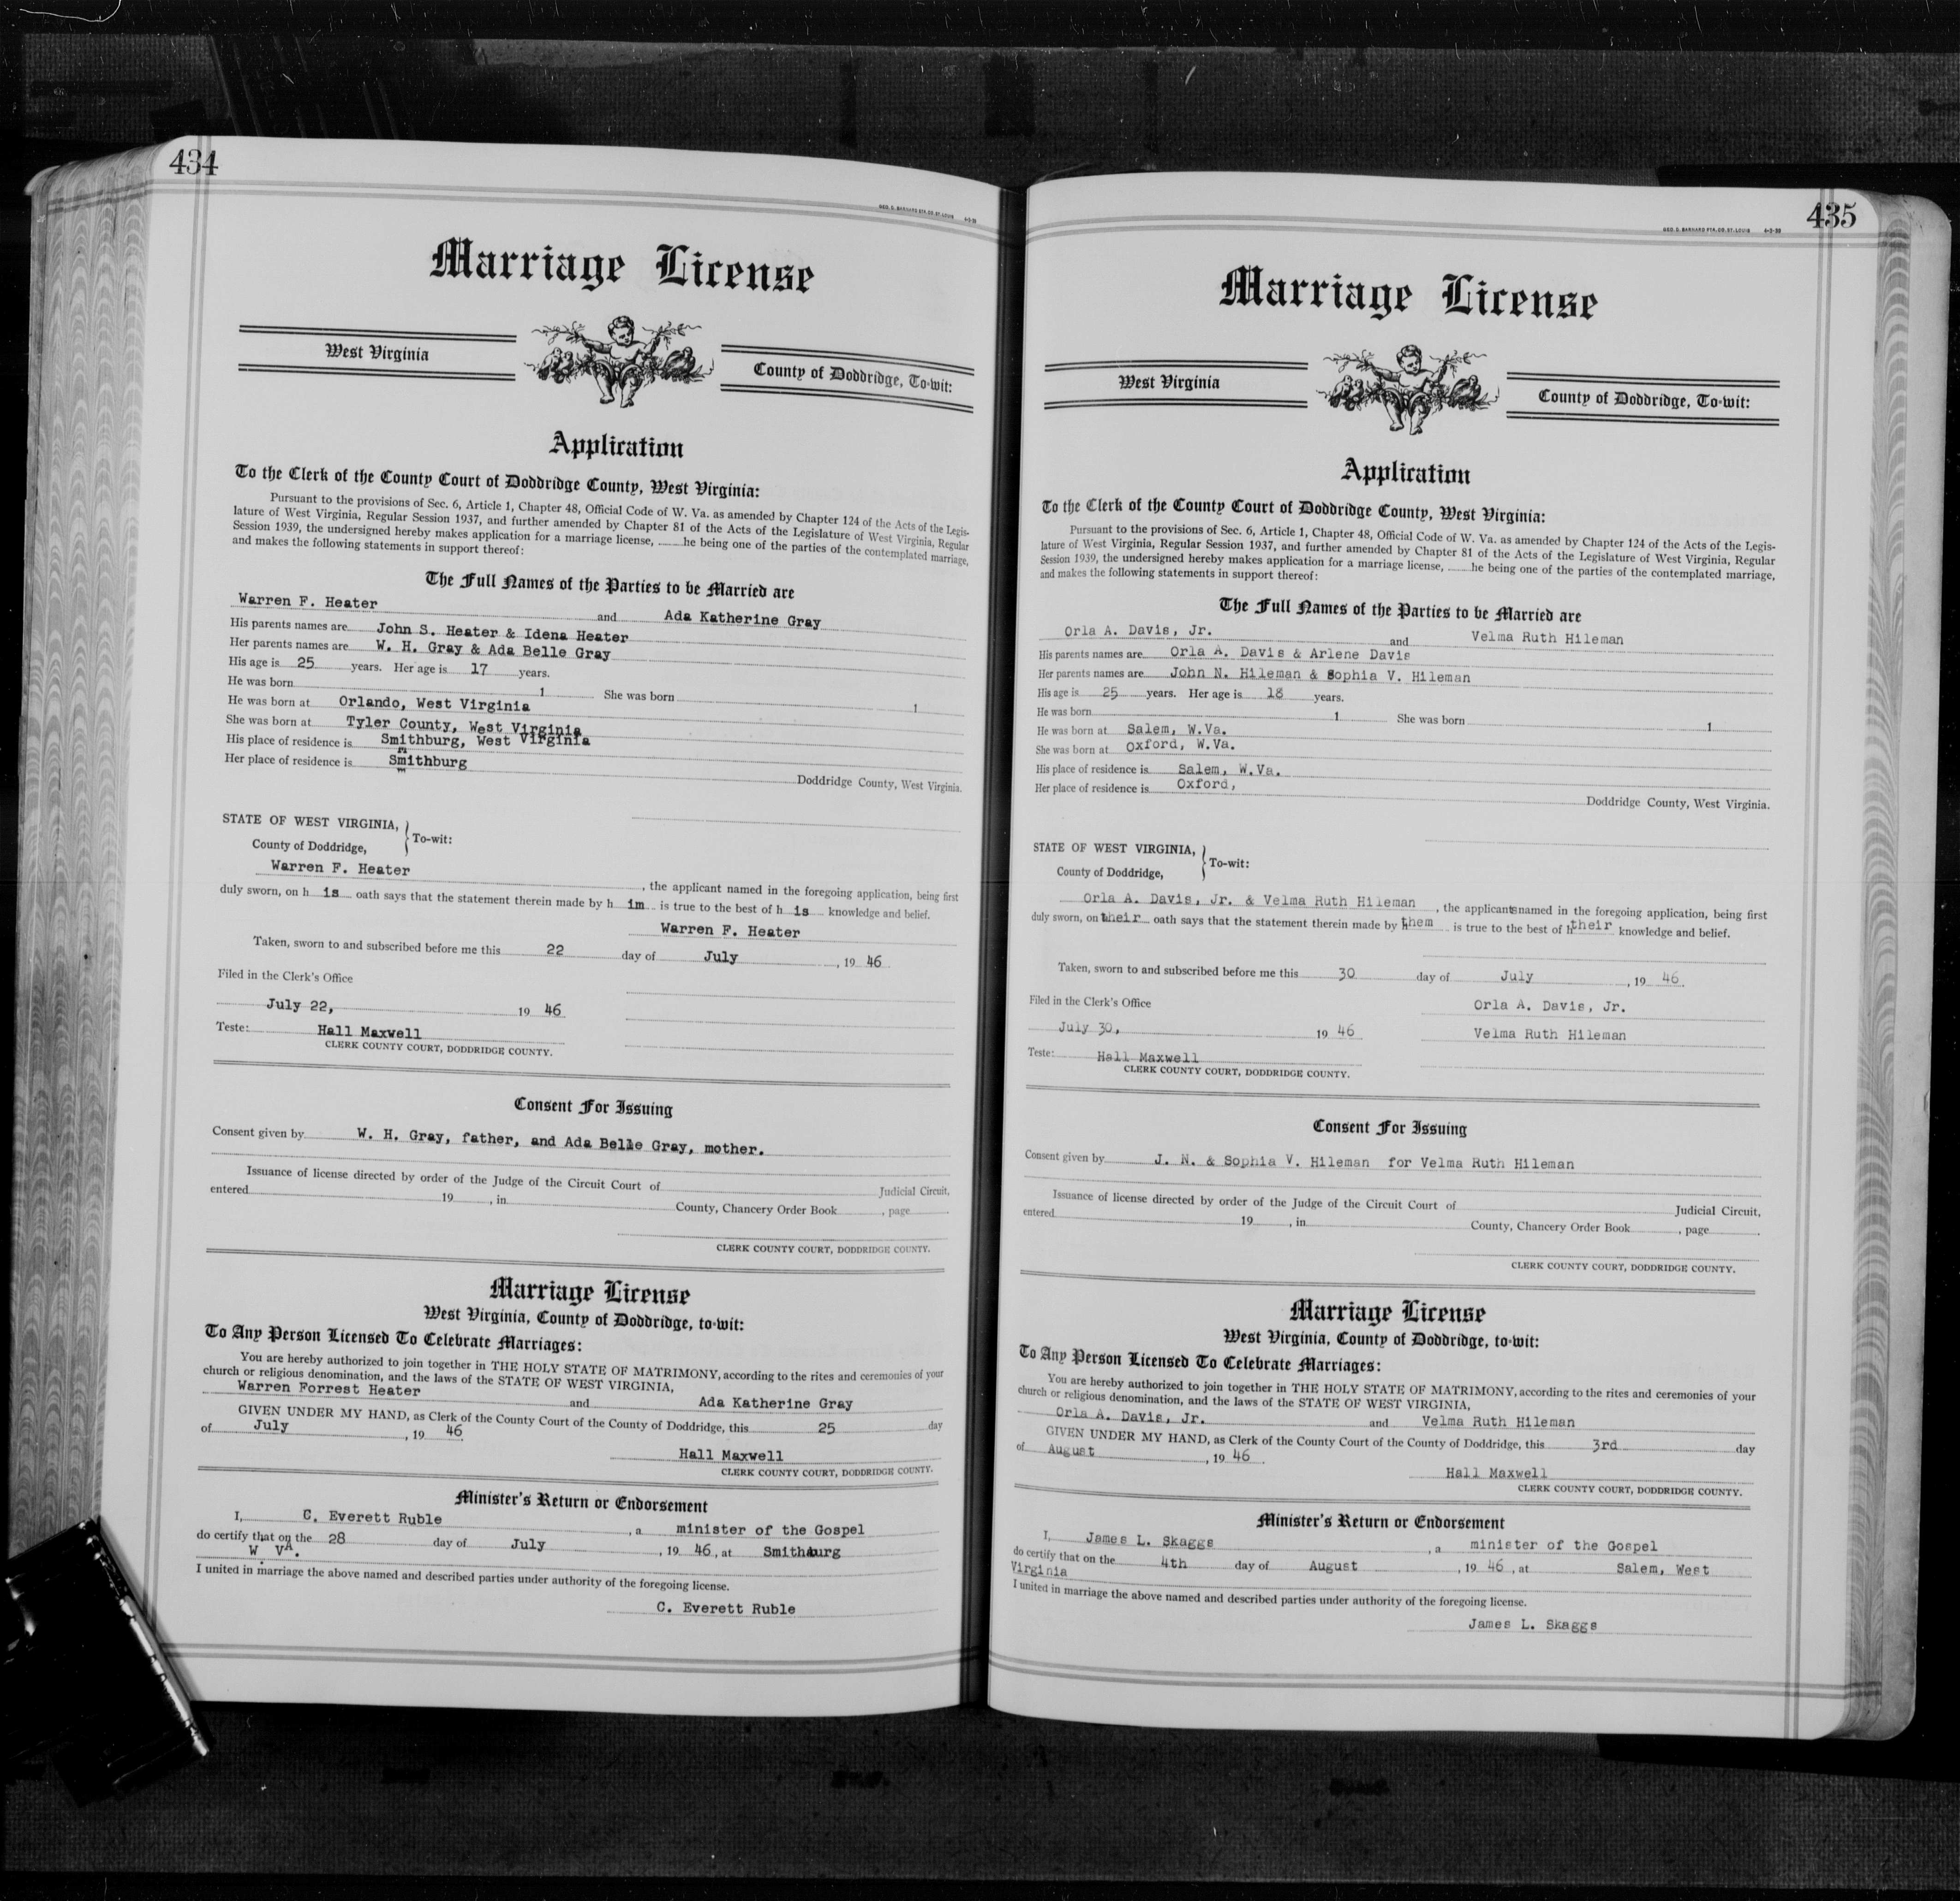 434
GEO. D. BARNARD STA. CO. ST. LOUIS 4-3-39
Marriage License
West Virginia
County of Doddridge, To-wit:
Application
To the Clerk of the County Court of Doddridge County, West Virginia:
Pursuant to the provisions of Sec. 6, Article 1, Chapter 48, Official Code of W. Va. as amended by Chapter 124 of the Acts of the Legis-
lature of West Virginia, Regular Session 1937, and further amended by Chapter 81 of the Acts of the Legislature of West Virginia, Regular
Session 1939, the undersigned hereby makes application for a marriage license, ........he being one of the parties of the contemplated marriage,
and makes the following statements in support thereof:
The Full Names of the Parties to be Married are
Warren F. Heater and Ada Katherine Gray
His parents names are John S. Heater & Idena Heater
Her parents names are W. H. Gray & Ada Belle Gray
His age is 25 years. Her age is 17 years.
He was born 1 She was born 1
He was born at Orlando, West Virginia
She was born at Tyler County, West Virginia
His place of residence is Smithburg, West Virginia
Her place of residence is Smithburg
Doddridge County, West Virginia.
STATE OF WEST VIRGINIA,
County of Doddridge, To-wit:
Warren F. Heater, the applicant named in the foregoing application, being first
duly sworn, on h is oath says that the statement therein made by h im is true to the best of h is knowledge and belief.
Warren F. Heater
Taken, sworn to and subscribed before me this 22 day of July, 19 46
Filed in the Clerk's Office
July 22, 19 46
Teste: Hall Maxwell
CLERK COUNTY COURT, DODDRIDGE COUNTY.
Consent For Issuing
Consent given by W. H. Gray, father, and Ada Belle Gray, mother.
Issuance of license directed by order of the Judge of the Circuit Court of Judicial Circuit,
entered 19 , in County, Chancery Order Book , page
CLERK COUNTY COURT, DODDRIDGE COUNTY.
Marriage License
West Virginia, County of Doddridge, to-wit:
To Any Person Licensed To Celebrate Marriages:
You are hereby authorized to join together in THE HOLY STATE OF MATRIMONY, according to the rites and ceremonies of your
church or religious denomination, and the laws of the STATE OF WEST VIRGINIA,
Warren Forrest Heater and Ada Katherine Gray
GIVEN UNDER MY HAND, as Clerk of the County Court of the County of Doddridge, this 25 day
of July, 19 46
Hall Maxwell
CLERK COUNTY COURT, DODDRIDGE COUNTY.
Minister's Return or Endorsement
I, C. Everett Ruble, a minister of the Gospel
do certify that on the 28 day of July, 19 46, at Smithburg
W. VA.
I united in marriage the above named and described parties under authority of the foregoing license.
C. Everett Ruble
435
GEO. D. BARNARD STA. CO. ST. LOUIS 4-3-39
Marriage License
West Virginia
County of Doddridge, To-wit:
Application
To the Clerk of the County Court of Doddridge County, West Virginia:
Pursuant to the provisions of Sec. 6, Article 1, Chapter 48, Official Code of W. Va. as amended by Chapter 124 of the Acts of the Legis-
lature of West Virginia, Regular Session 1937, and further amended by Chapter 81 of the Acts of the Legislature of West Virginia, Regular
Session 1939, the undersigned hereby makes application for a marriage license, ........he being one of the parties of the contemplated marriage,
and makes the following statements in support thereof:
The Full Names of the Parties to be Married are
Orla A. Davis, Jr. and Velma Ruth Hileman
His parents names are Orla A. Davis & Arlene Davis
Her parents names are John N. Hileman & Sophia V. Hileman
His age is 25 years. Her age is 18 years.
He was born 1 She was born 1
He was born at Salem, W.Va.
She was born at Oxford, W.Va.
His place of residence is Salem, W.Va.
Her place of residence is Oxford,
Doddridge County, West Virginia.
STATE OF WEST VIRGINIA,
County of Doddridge, To-wit:
Orla A. Davis, Jr. & Velma Ruth Hileman, the applicants named in the foregoing application, being first
duly sworn, on their oath says that the statement therein made by them is true to the best of their knowledge and belief.
Taken, sworn to and subscribed before me this 30 day of July, 19 46
Filed in the Clerk's Office
Orla A. Davis, Jr.
July 30, 19 46
Velma Ruth Hileman
Teste: Hall Maxwell
CLERK COUNTY COURT, DODDRIDGE COUNTY.
Consent For Issuing
Consent given by J. N. & Sophia V. Hileman for Velma Ruth Hileman
Issuance of license directed by order of the Judge of the Circuit Court of Judicial Circuit,
entered 19 , in County, Chancery Order Book , page
CLERK COUNTY COURT, DODDRIDGE COUNTY.
Marriage License
West Virginia, County of Doddridge, to-wit:
To Any Person Licensed To Celebrate Marriages:
You are hereby authorized to join together in THE HOLY STATE OF MATRIMONY, according to the rites and ceremonies of your
church or religious denomination, and the laws of the STATE OF WEST VIRGINIA,
Orla A. Davis, Jr. and Velma Ruth Hileman
GIVEN UNDER MY HAND, as Clerk of the County Court of the County of Doddridge, this 3rd day
of August, 19 46
Hall Maxwell
CLERK COUNTY COURT, DODDRIDGE COUNTY.
Minister's Return or Endorsement
I, James L. Skaggs, a minister of the Gospel
do certify that on the 4th day of August, 19 46, at Salem, West
Virginia
I united in marriage the above named and described parties under authority of the foregoing license.
James L. Skaggs